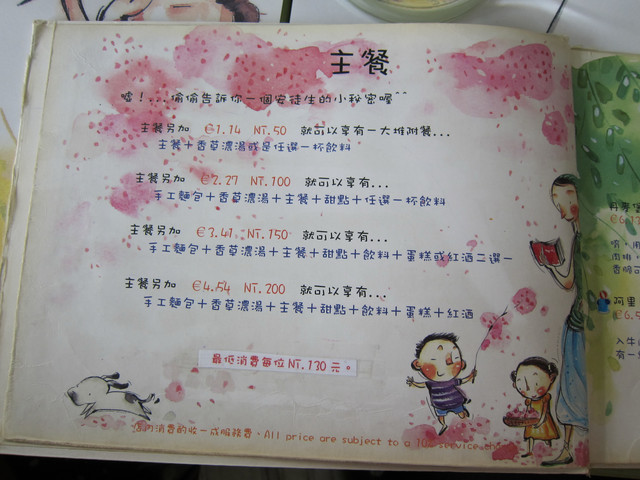 主餐
噓！...偷偷告訴你一個安徒生的小秘密喔^^
主餐另加 €1.14 NT.50 就可以享有一大堆附餐...
主餐+香草濃湯或是任選一杯飲料
主餐另加 €2.27 NT.100 就可以享有...
手工麵包+香草濃湯+主餐+甜點+任選一杯飲料
主餐另加 €3.41 NT.150 就可以享有...
手工麵包+香草濃湯+主餐+甜點+飲料+蛋糕或紅酒二選一
主餐另加 €4.54 NT.200 就可以享有...
手工麵包+香草濃湯+主餐+甜點+飲料+蛋糕+紅酒
最低消費每位NT.130元。
消費酌收一成服務費。All price are subject to a 10% service
丹麥
阿里
入牛
有一